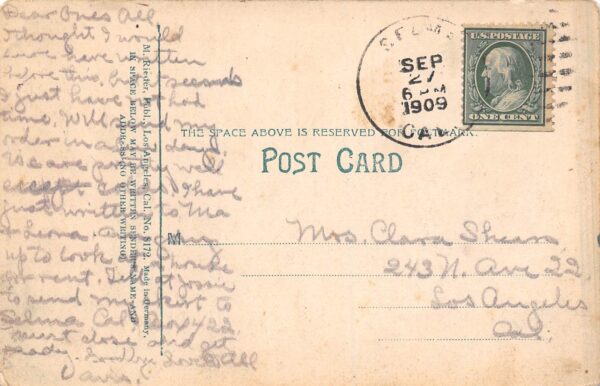 Dear Ones All
I thought I would
have written
before this, but seconds
I just have not had
time. Will send my
order in a day
We are very well
except I have
just written to Ma
& Leona. am going
up to look house
for rent. Tell Josie
to send my to
Selma Cal Box 422
must close and get
ready. Goodbye Love to All
Davis.
M. Rieder, Publ., Los Angeles, Cal. No. 8172. Made in Germany.
IN SPACE BELOW MAY BE WRITTEN SENDER'S NAME AND
ADDRESS (NO OTHER WRITING)
SELMA
SEP
27
6 PM
1909
CAL.
U.S. POSTAGE
ONE CENT
THE SPACE ABOVE IS RESERVED FOR POSTMARK.
POST CARD
M
Mrs. Clara Shean
243 N. Ave 22
Los Angeles
Cal